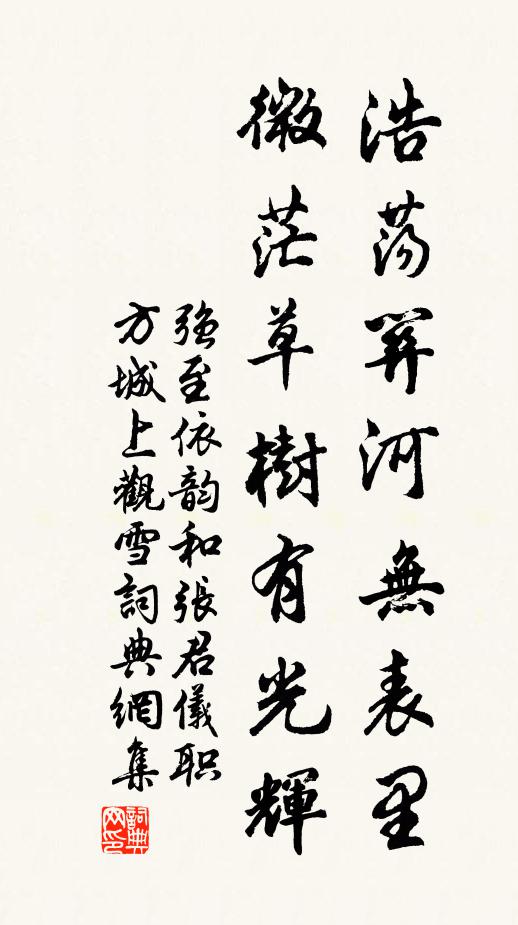 浩蕩關河無表里
微茫草樹有光輝
強至依韵和張君儀职
方城上觀雪詞典網集
詞典网印